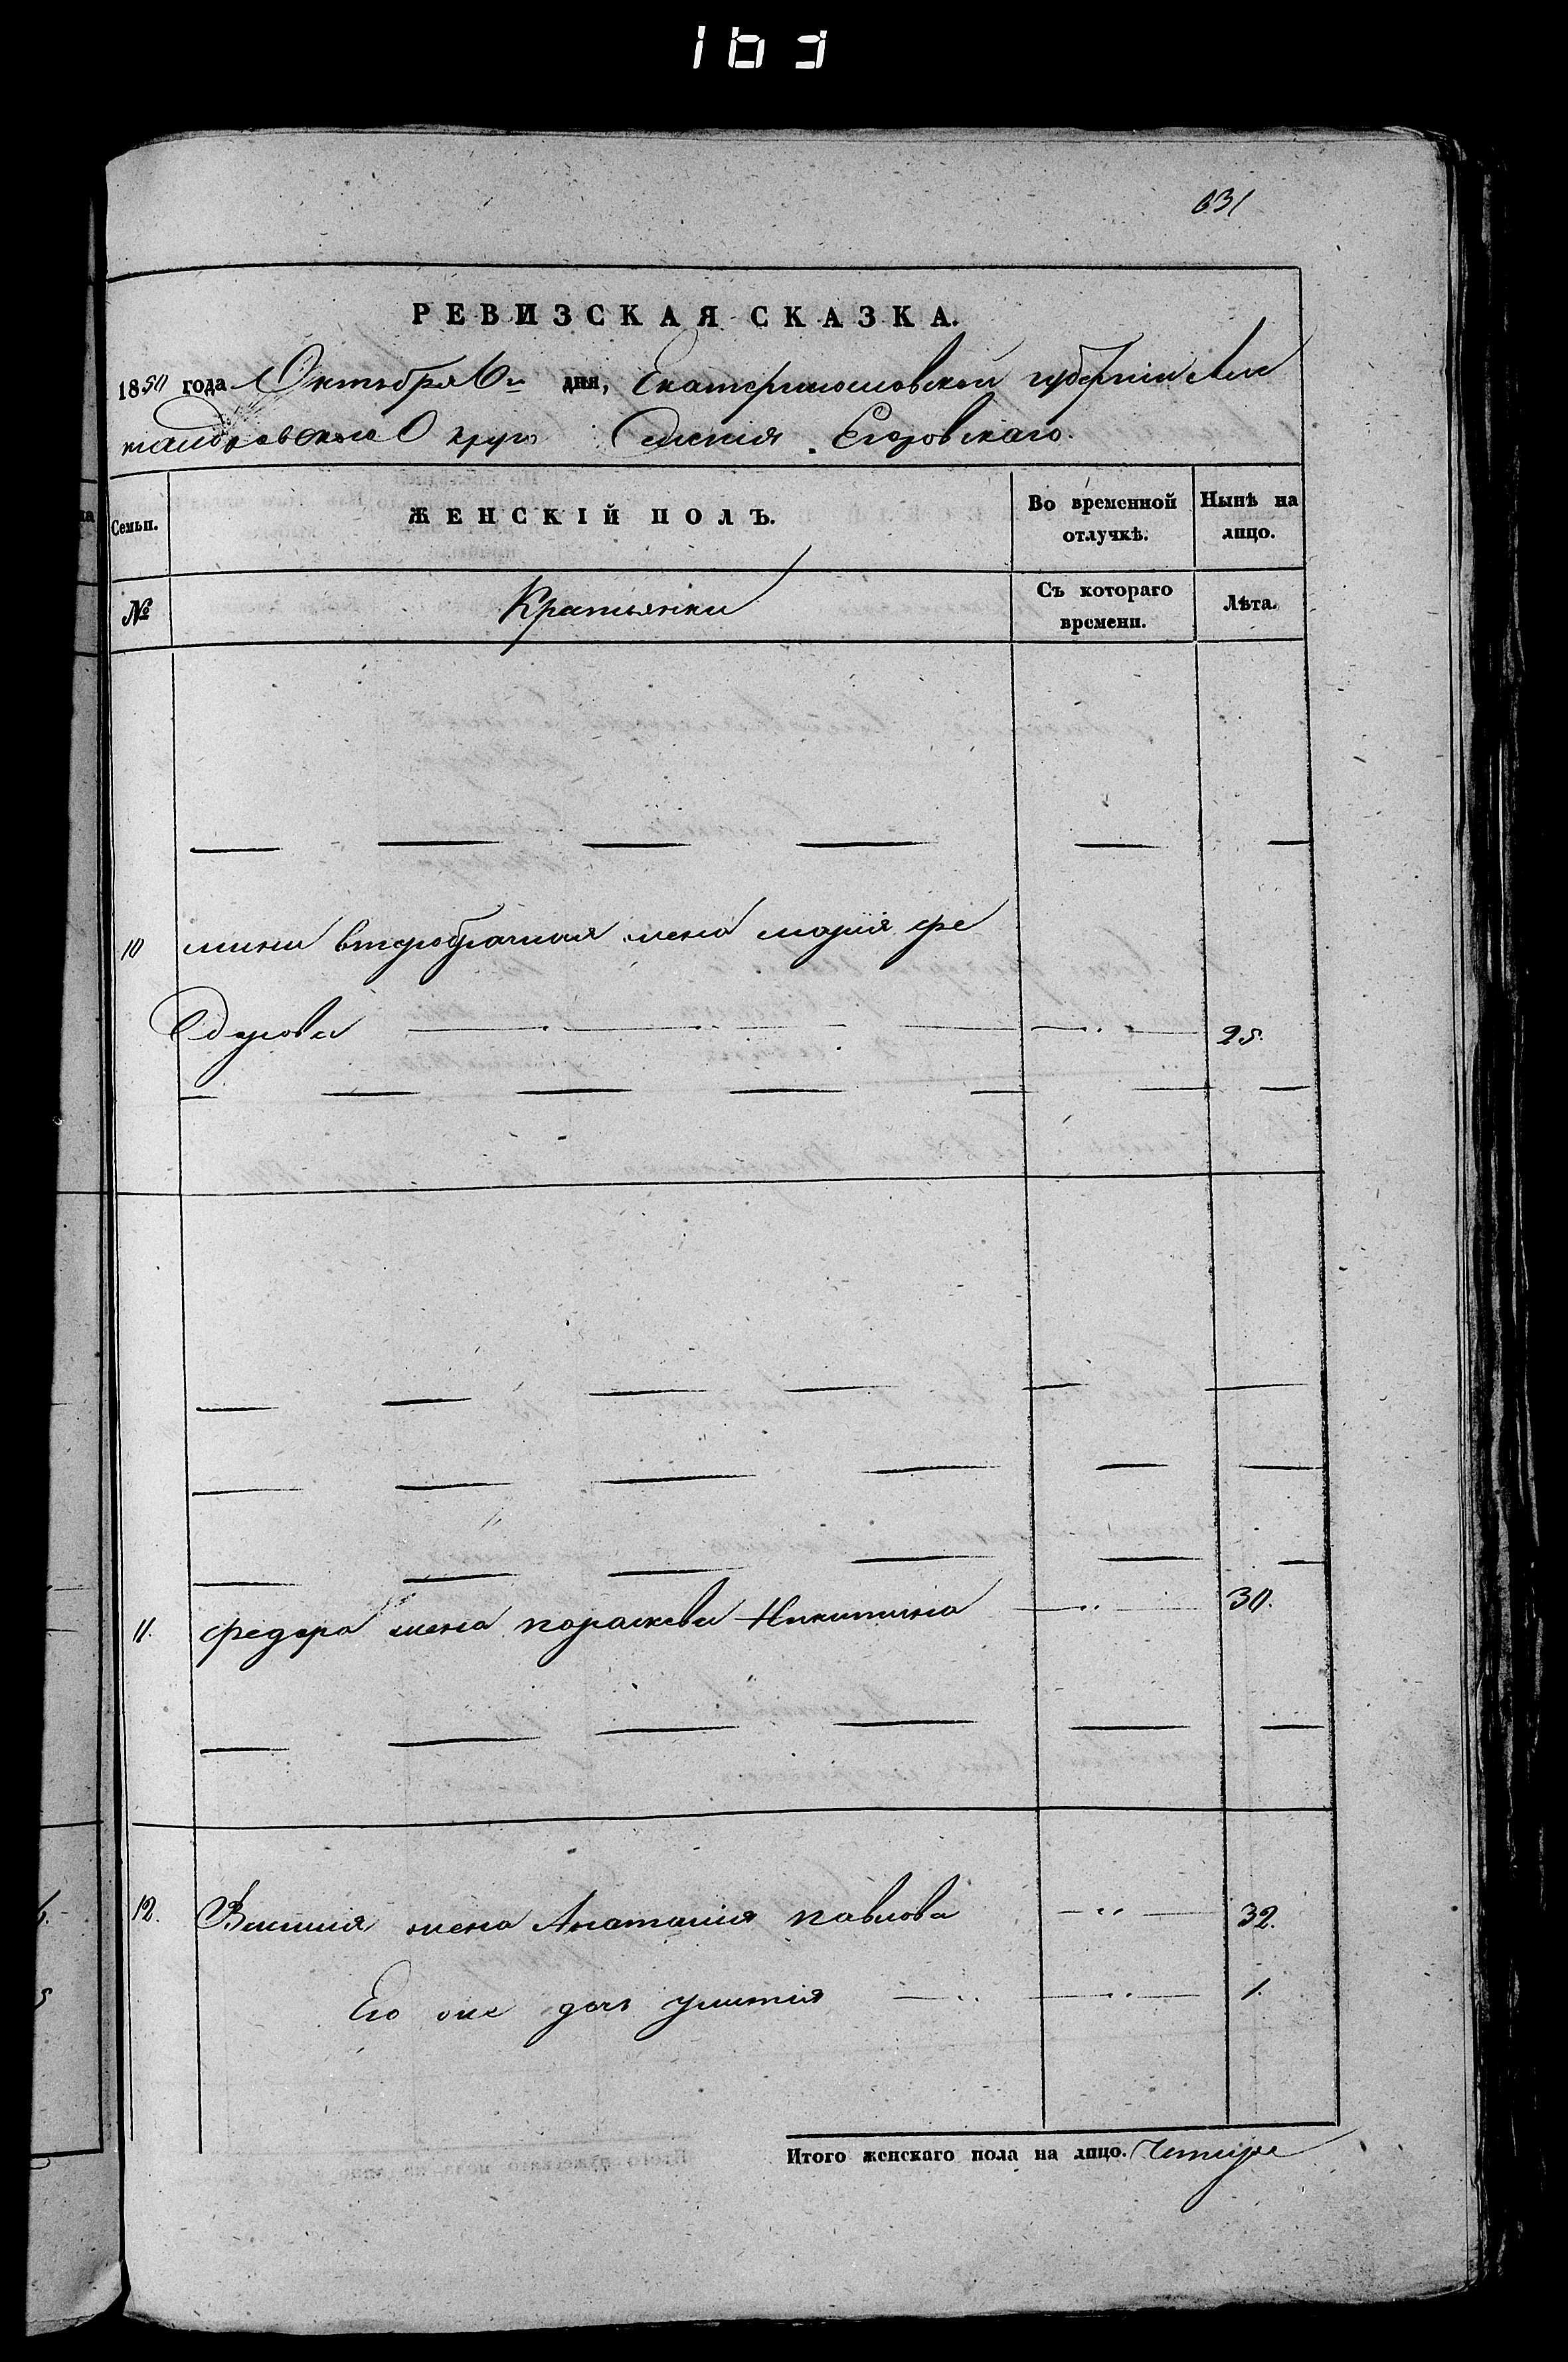 163
631
РЕВИЗСКАЯ СКАЗКА.
1850 года Октября 6го дня, Екатеринославской губернии Але
ксандровского Округа Селения Егоровскаго.
Семьи. ЖЕНСКІЙ ПОЛЪ. Во временной отлучкѣ. Нынѣ на лицо.
№ Крестьянки Съ котораго времени. Лѣта.
10 второбрачная жена мария фе
дорова 25.
11. федора жена параскева Никитина 30.
12. жена Анатасия павлова 32.
Его же дочь 1.
Итого женскаго пола на лицо. Четыре